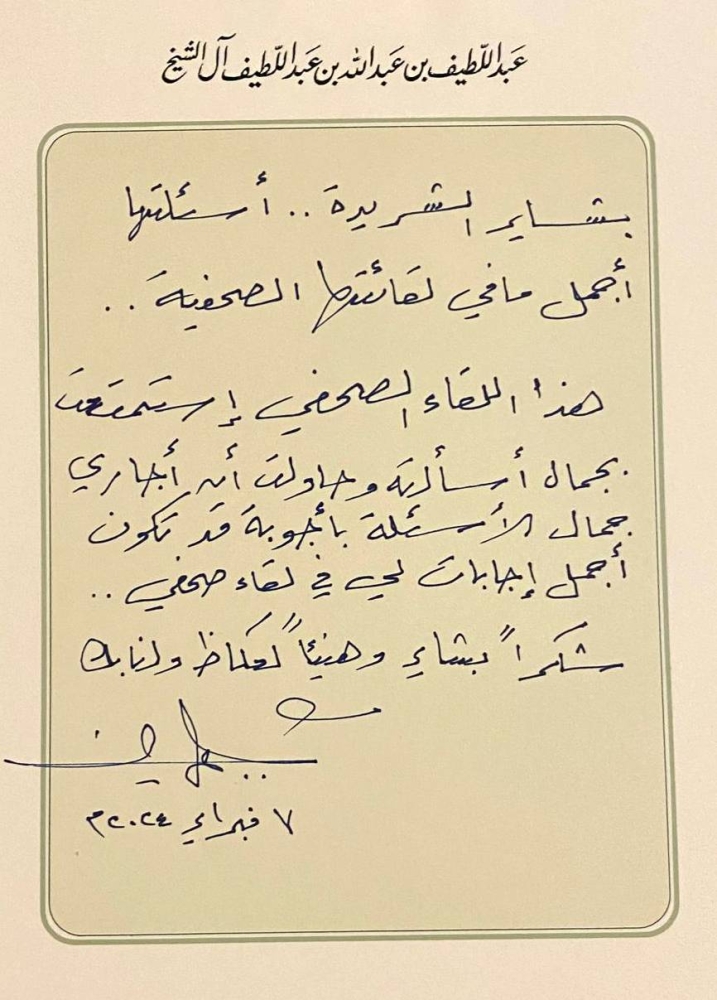 عبداللطيف بن عبدالله بن عبداللطيف آل الشيخ
بشاير الشريدة .. أسئلتها
أجمل مافي لقائتها الصحفية ..
هذا اللقاء الصحفي إستمتعت
بجمال أسألته وحاولت أن أجاري
جمال الأسئلة بأجوبة قد تكون
أجمل إجابات لي في لقاء صحفي ..
شكراً بشاير وهنيئاً لعكاظ ولنا بك
٧ فبراير ٢٠٢٤م